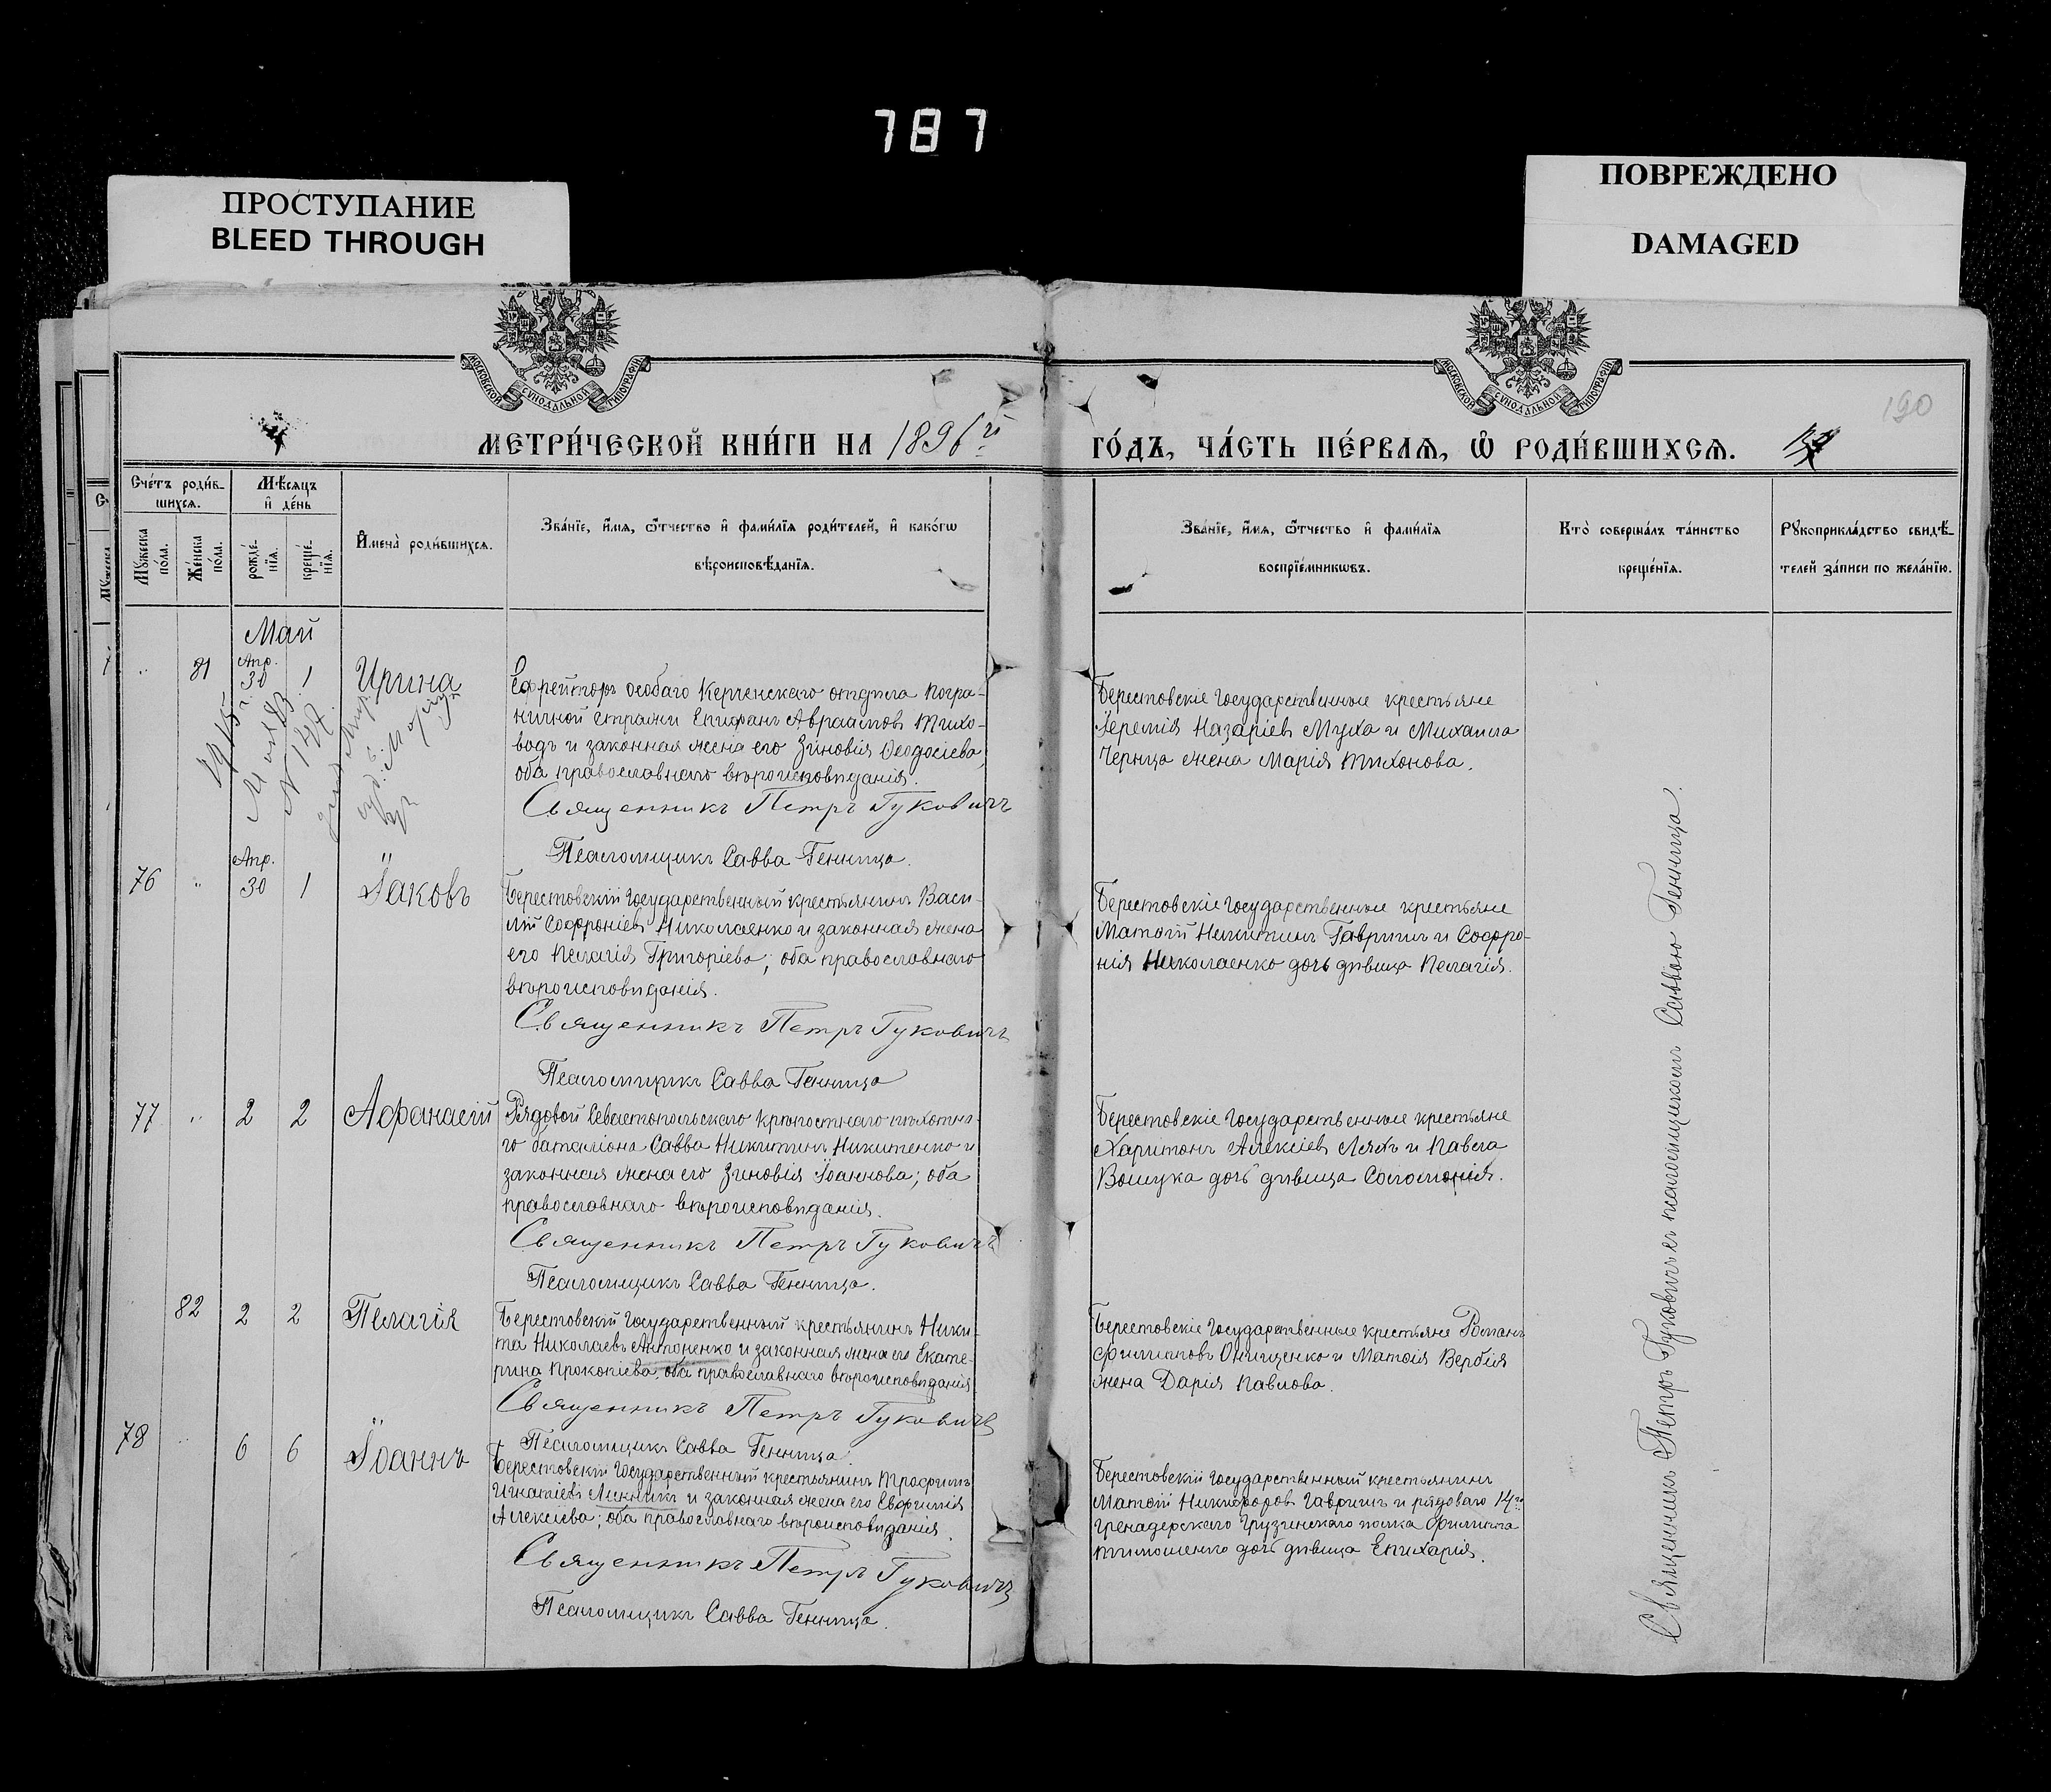 787
ПРОСТУПАНИЕ
BLEED THROUGH
ПОВРЕЖДЕНО
DAMAGED
МОСКОВСКОЙ СУНОДАЛЬНОЙ ТИПОГРАФІИ
МОСКОВСКОЙ СУНОДАЛЬНОЙ ТИПОГРАФІИ
190
МЕТРИ́ЧЕСКОЙ КНИ́ГИ НА 1896й
ГО́ДЪ, ЧА́СТЬ ПЕ́РВАЯ, Ѡ РОДИ́ВШИХСЯ.
Сче́тъ роди́в-
шихся.
Мꙋжеска по́ла.
Же́нска по́ла.
Мѣ́сяцъ
и҆ де́нь
рожде́-
нїя.
креще́-
нїя.
И҆мена̀ роди́вшихся.
Зва́нїе, и҆́мя, ѻ҆́тчество и҆ фами́лїя роди́телей, и҆ како́гѡ
вѣроисповѣ́данїя.
Зва́нїе, и҆́мя, ѻ҆́тчество и҆ фами́лїя
воспрїе́мникѡвъ.
Кто̀ соверша́лъ та́инство
креще́нїя.
Рꙋкоприкла́дство свидѣ́-
телей за́писи по жела́нїю.
Май
81
Апр.
30
1
Ирина
Ефрейторъ особаго Керченскаго отдѣла погра-
ничной стражи Епифанъ Авраамовъ Тихо-
водъ и законная жена его Зиновія Ѳеодосіева,
оба православнаго вѣроисповѣданія.
Священникъ Петръ Гуковичъ
Псаломщикъ Савва Генница.
Берестовскіе Государственные крестьяне
Іеремія Назаріевъ Муха и Михаила
Черныа жена Марія Тихонова.
1915 г.
Мая 23
N 147
76
Апр.
30
1
Іаковъ
Берестовскій Государственный крестьянинъ Васи-
лій Софроніевъ Николаенко и законная жена
его Пелагія Григоріева; оба православнаго
вѣроисповѣданія.
Священникъ Петръ Гуковичъ
Псаломщикъ Савва Генница
Берестовскіе Государственные крестьяне
Матѳій Никитинъ Гавришъ и Софро-
нія Николаенко дочь дѣвица Пелагія.
77
2
2
Аѳанасій
Рядовой Севастопольскаго крѣпостнаго пѣхотна-
го баталіона Савва Никитинъ Никитенко и
законная жена его Зиновія Іоаннова; оба
православнаго вѣроисповѣданія.
Священникъ Петръ Гуковичъ
Псаломщикъ Савва Генница.
Берестовскіе Государственные крестьяне
Харитонъ Алексіевъ Ляхъ и Павла
Вошука дочь дѣвица Соломонія.
82
2
2
Пелагія
Берестовскій Государственный крестьянинъ Ники-
та Николаевъ Антоненко и законная жена его Екате-
рина Прокопіева, оба православнаго вѣроисповѣданія
Священникъ Петръ Гуковичъ
Псаломщикъ Савва Генница.
Берестовскіе Государственные крестьяне Романъ
Филипповъ Онищенко и Матѳія Вербія
жена Дарія Павлова.
78
6
6
Іоаннъ
Берестовскій Государственный крестьянинъ Трофимъ
Игнатіевъ Линникъ и законная жена его Евфимія
Алексіева; оба православнаго вѣроисповѣданія.
Священникъ Петръ Гуковичъ
Псаломщикъ Савва Генница.
Берестовскій Государственный крестьянинъ
Матѳій Никифоровъ Гавришъ и рядоваго 14го
Гренадерскаго Грузинскаго полка Филиппа
Тимошенко дочь дѣвица Епихарія.
Священникъ Петръ Гуковичъ съ псаломщикомъ Саввою Генница.